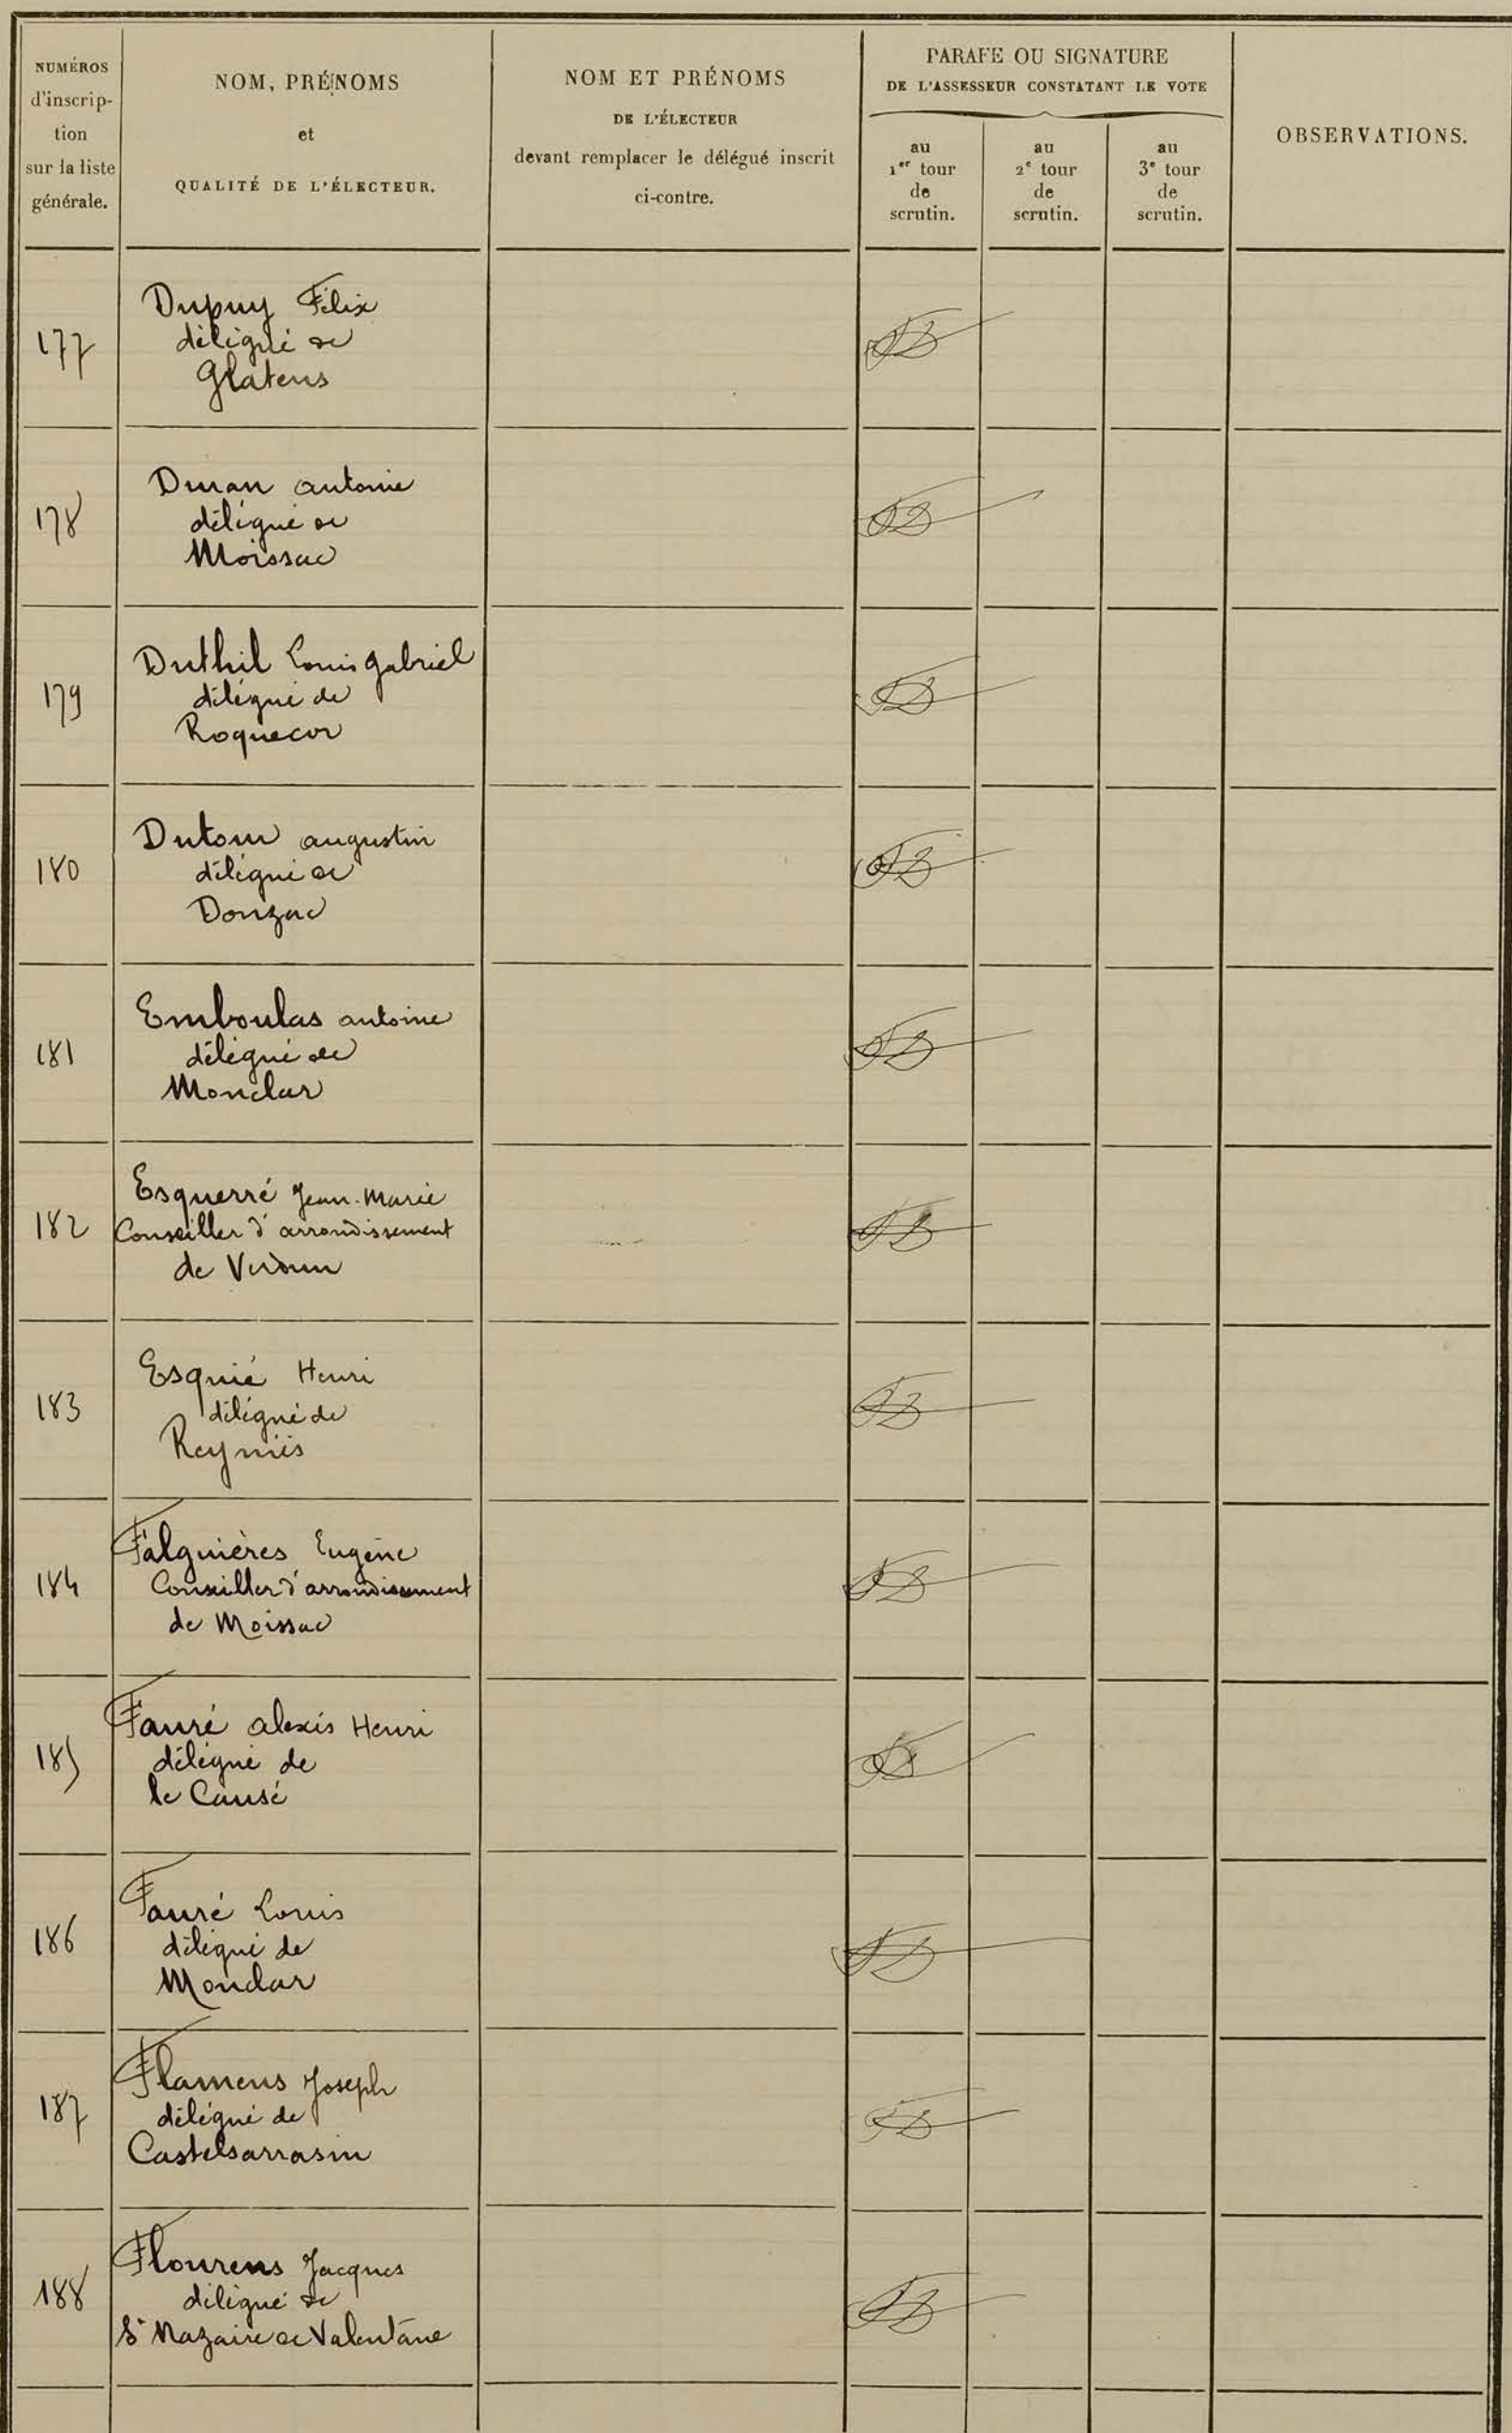 NUMÉROS
d'inscrip-
tion
sur la liste
générale.
NOM, PRÉNOMS
et
QUALITÉ DE L'ÉLECTEUR.
NOM ET PRÉNOMS
DE L'ÉLECTEUR
devant remplacer le délégué inscrit
ci-contre.
PARAFE OU SIGNATURE
DE L'ASSESSEUR CONSTATANT LE VOTE
au
1er tour
de
scrutin.
au
2e tour
de
scrutin.
au
3e tour
de
scrutin.
OBSERVATIONS.
177
Dupuy Félix
délégué de
Glatens
178
Duran antoine
délégué de
Moissac
179
Duthil Louis Gabriel
délégué de
Roquecor
180
Dutour augustin
délégué de
Donzac
181
Emboulas antoine
délégué de
Monclar
182
Esquerré Jean-Marie
Conseiller d'arrondissement
de Verdun
183
Esquié Henri
délégué de
Reyniès
184
Falguières Eugène
Conseiller d'arrondissement
de Moissac
185
Fauré alexis Henri
délégué de
le Causé
186
Fauré Louis
délégué de
Monclar
187
Flamens Joseph
délégué de
Castelsarrasin
188
Flourens Jacques
délégué de
St Nazaire de Valentane